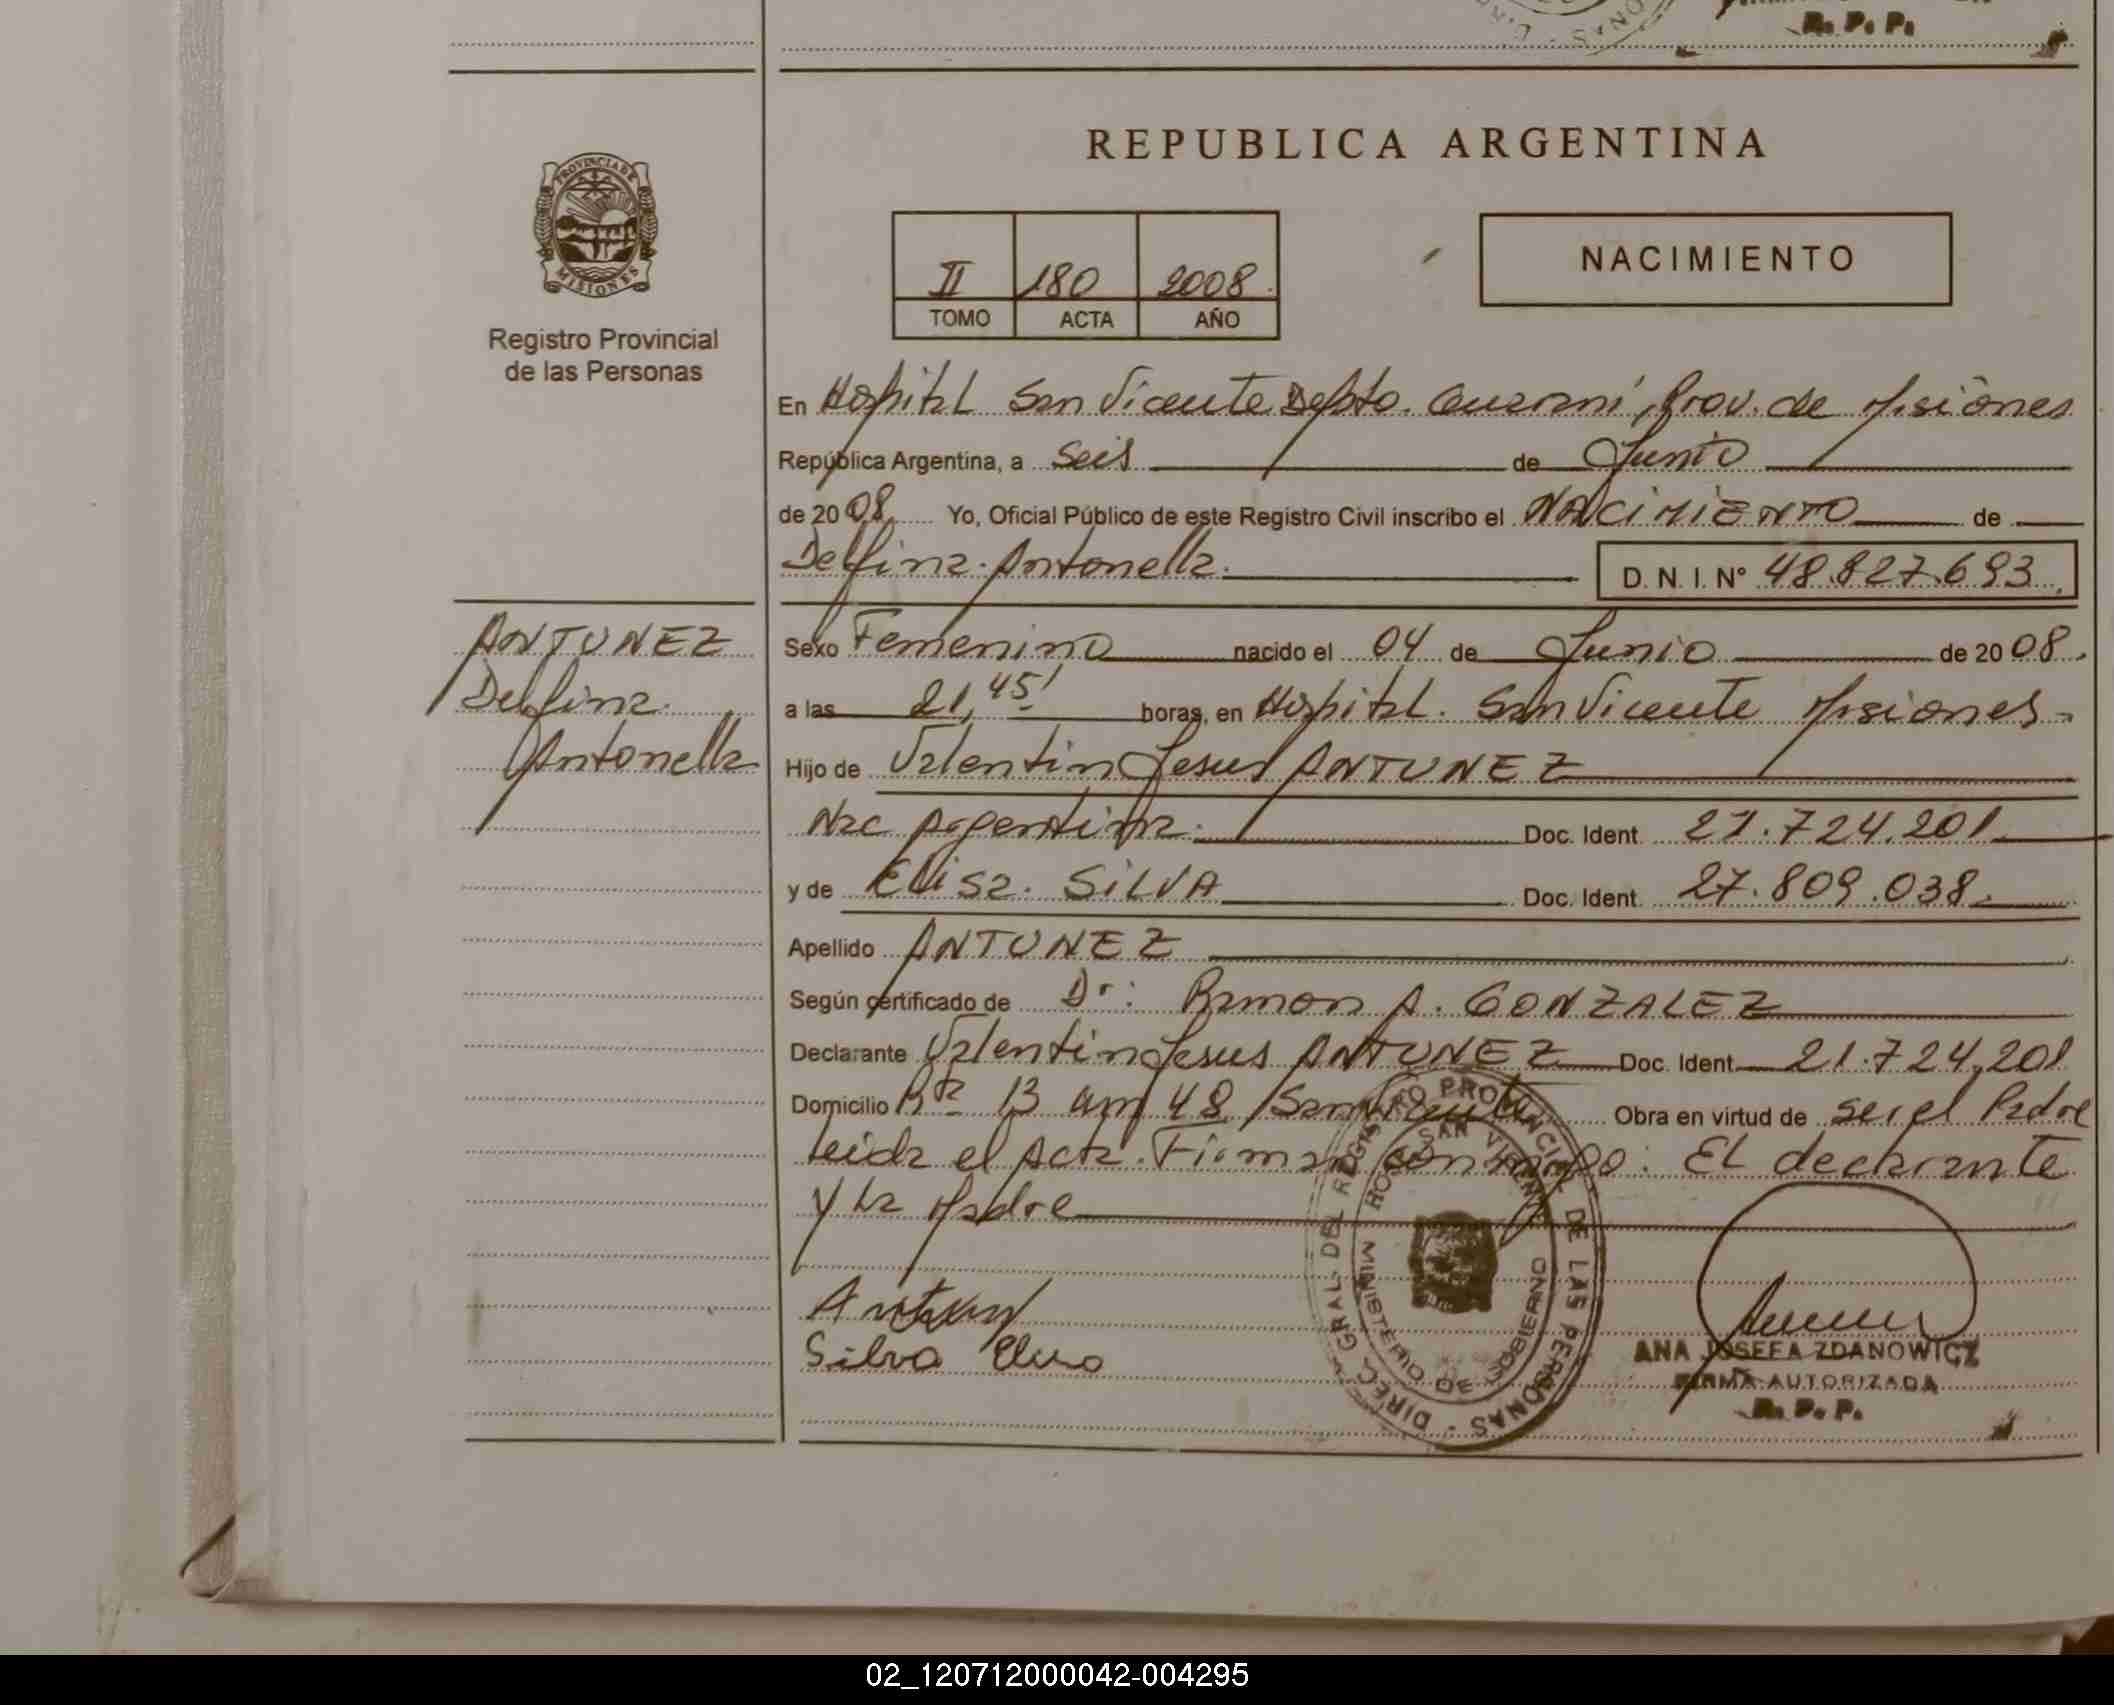 R. P. P.
PROVINCIA DE
MISIONES
Registro Provincial
de las Personas
REPUBLICA ARGENTINA
II 180 2008
TOMO ACTA AÑO
NACIMIENTO
En Hospital San Vicente Depto. Guarani, Prov. de Misiones
República Argentina, a seis de Junio
de 2008 Yo, Oficial Público de este Registro Civil inscribo el NACIMIENTO de
Delfina Antonella. D. N. I. Nº 48.827.693
ANTUNEZ
Delfina
Antonella
Sexo Femenino nacido el 04 de Junio de 2008.
a las 21,45' horas, en Hospital San Vicente Misiones
Hijo de Valentin Jesus ANTUNEZ
Nac Argentina Doc. Ident. 21.724.201
y de Elisa SILVA Doc. Ident. 27.809.038
Apellido ANTUNEZ
Según certificado de Dr: Ramon A. GONZALEZ
Declarante Valentin Jesus ANTUNEZ Doc. Ident. 21.724.201
Domicilio Rta 13 km 48 San Vicente Obra en virtud de ser el Padre
leida el Acta. Firman conmigo: El declarante
y la Madre
Silva Elisa
DIREC. GRAL. DEL REGISTRO PROVINCIAL DE LAS PERSONAS
HOSP. SAN VICENTE
MINISTERIO DE GOBIERNO
ANA JOSEFA ZDANOWICZ
FIRMA AUTORIZADA
R. P. P.
02_120712000042-004295